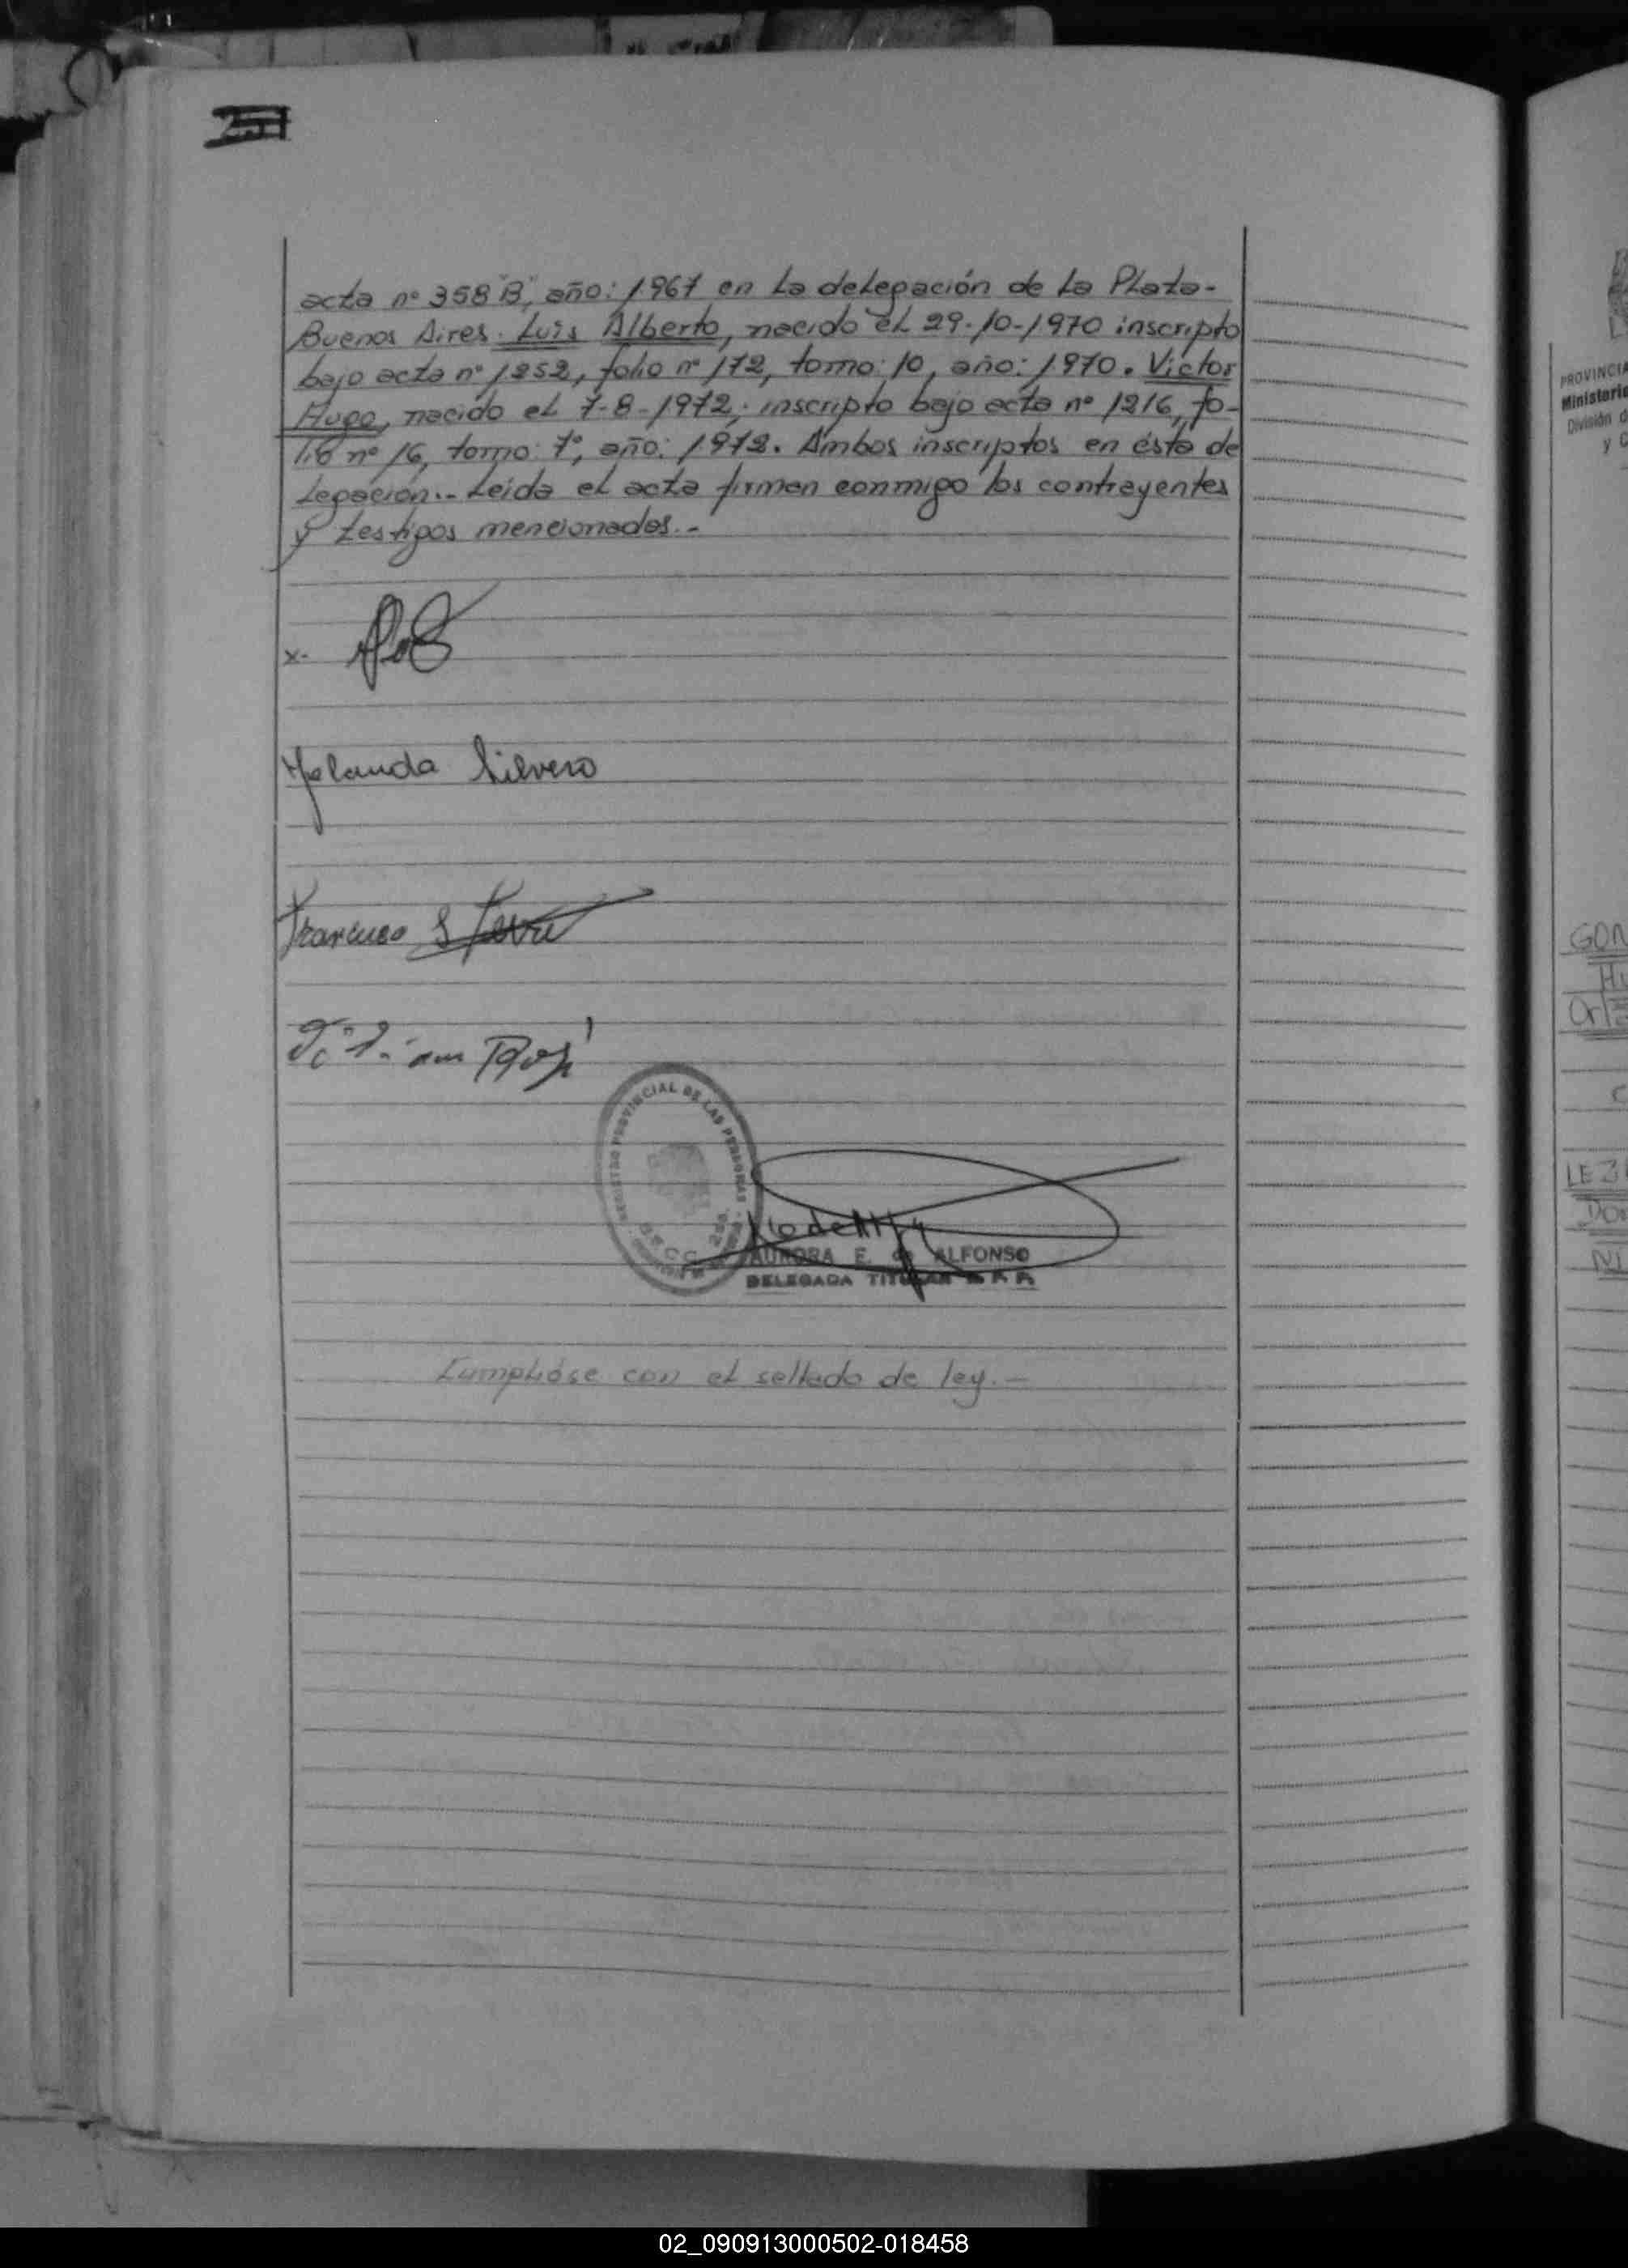 acta nº 358"B", año: 1967 en La delegación de La Plata-
Buenos Aires. Luis Alberto, nacido el 29-10-1970 inscripto
bajo acta nº 1252, folio nº 172, tomo: 10, año: 1970. Victor
Hugo, nacido el 7-8-1972; inscripto bajo acta nº 1216, fo-
lio nº 16, tomo: 7º, año: 1972. Ambos inscriptos en ésta de
legación.. Leida el acta firman conmigo los contrayentes
y testigos mencionados.-
x-
Yolanda Silvero
Francisco S
REGISTRO PROVINCIAL DE LAS PERSONAS
SECC. 2da.
AURORA E. de ALFONSO
DELEGADA TITULAR
Cumplióse con el sellado de ley.-
PROVINCIA
Ministerio
División d
y C
GON
HU
LE 3
DO
NI
02_090913000502-018458